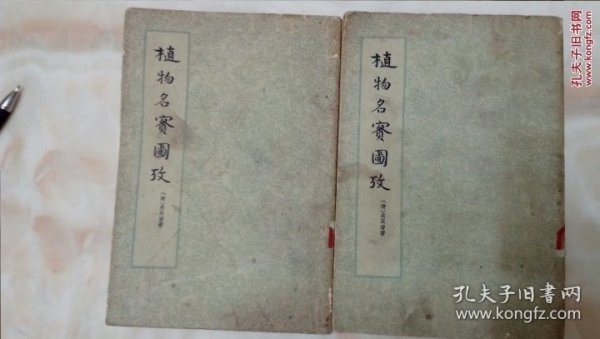 植物名實圖攷
(清)吳其濬著
植物名實圖攷
(清)吳其濬著
孔夫子旧书网
www.kongfz.com
孔夫子旧书网
www.kongfz.com